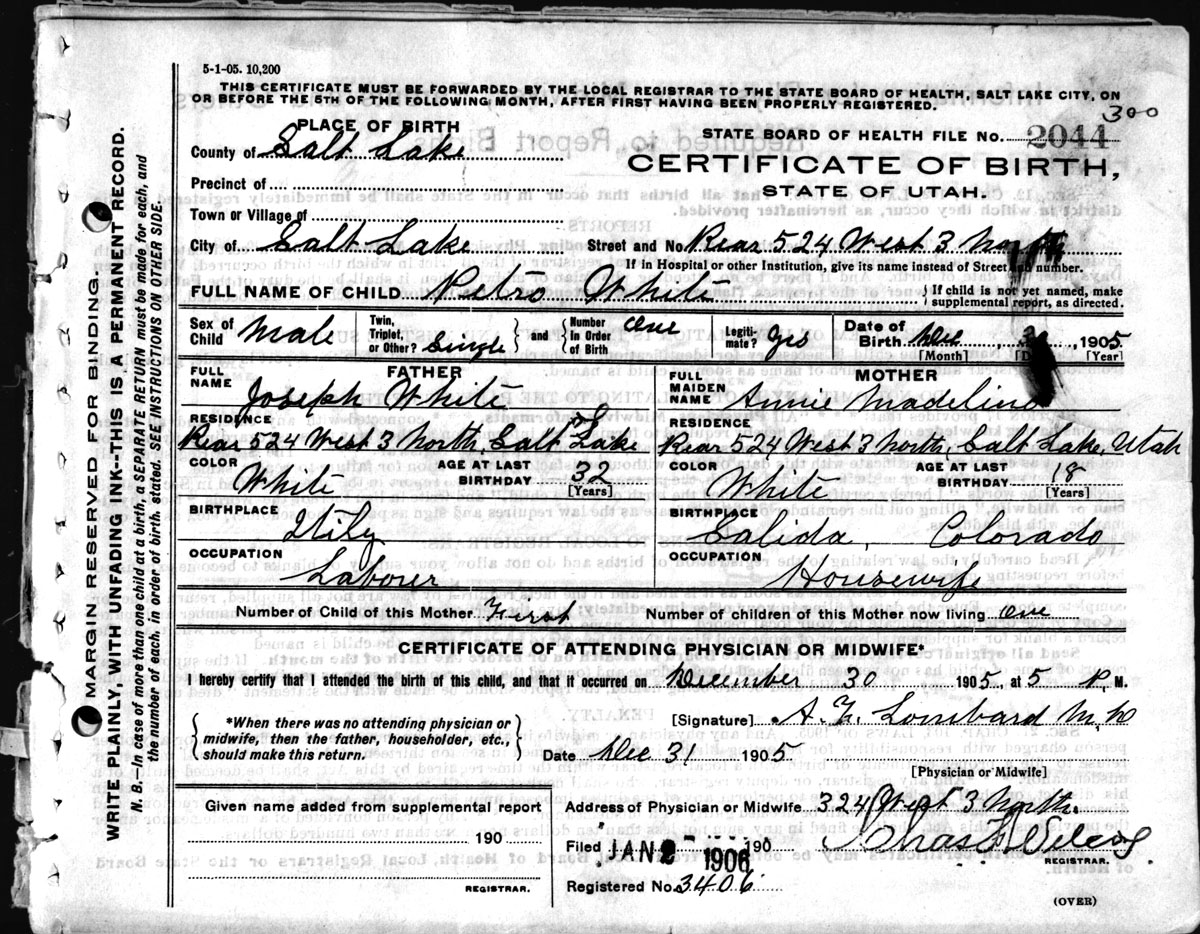 5-1-05. 10,200
THIS CERTIFICATE MUST BE FORWARDED BY THE LOCAL REGISTRAR TO THE STATE BOARD OF HEALTH, SALT LAKE CITY, ON
OR BEFORE THE 5TH OF THE FOLLOWING MONTH, AFTER FIRST HAVING BEEN PROPERLY REGISTERED.
300
PLACE OF BIRTH
STATE BOARD OF HEALTH FILE NO. 2044
County of Salt Lake
CERTIFICATE OF BIRTH,
Precinct of
STATE OF UTAH.
Town or Village of
City of Salt Lake Street and No. Rear 524 West 3 North
If in Hospital or other Institution, give its name instead of Street and number.
FULL NAME OF CHILD Petro White { If child is not yet named, make supplemental report, as directed.
Sex of Child Male Twin, Triplet, or Other? Single } and { Number In Order of Birth One Legiti-mate? Yes Date of Birth Dec , 1905
[Month] [Year]
FATHER
FULL NAME Joseph White
RESIDENCE
Rear 524 West 3 North, Salt Lake
COLOR White AGE AT LAST BIRTHDAY 32
[Years]
BIRTHPLACE
Itily
OCCUPATION
Laborer
MOTHER
FULL MAIDEN NAME Annie Madelina
RESIDENCE
Rear 524 West 3 North, Salt Lake, Utah
COLOR White AGE AT LAST BIRTHDAY 18
[Years]
BIRTHPLACE
Salida, Colorado
OCCUPATION
Housewife
Number of Child of this Mother First Number of children of this Mother now living One
CERTIFICATE OF ATTENDING PHYSICIAN OR MIDWIFE*
I hereby certify that I attended the birth of this child, and that it occurred on December 30 1905, at 5 P. M.
{ *When there was no attending physician or midwife, then the father, householder, etc., should make this return. }
[Signature] Lombard M D
Date Dec 31 1905
[Physician or Midwife]
Given name added from supplemental report
190
REGISTRAR.
Address of Physician or Midwife 324 West 3 North.
Filed JAN 1906 190 Chas
REGISTRAR.
Registered No. 3406
(OVER)
MARGIN RESERVED FOR BINDING.
WRITE PLAINLY, WITH UNFADING INK--THIS IS A PERMANENT RECORD.
N. B.—In case of more than one child at a birth, a SEPARATE RETURN must be made for each, and
the number of each, in order of birth, stated. SEE INSTRUCTIONS ON OTHER SIDE.